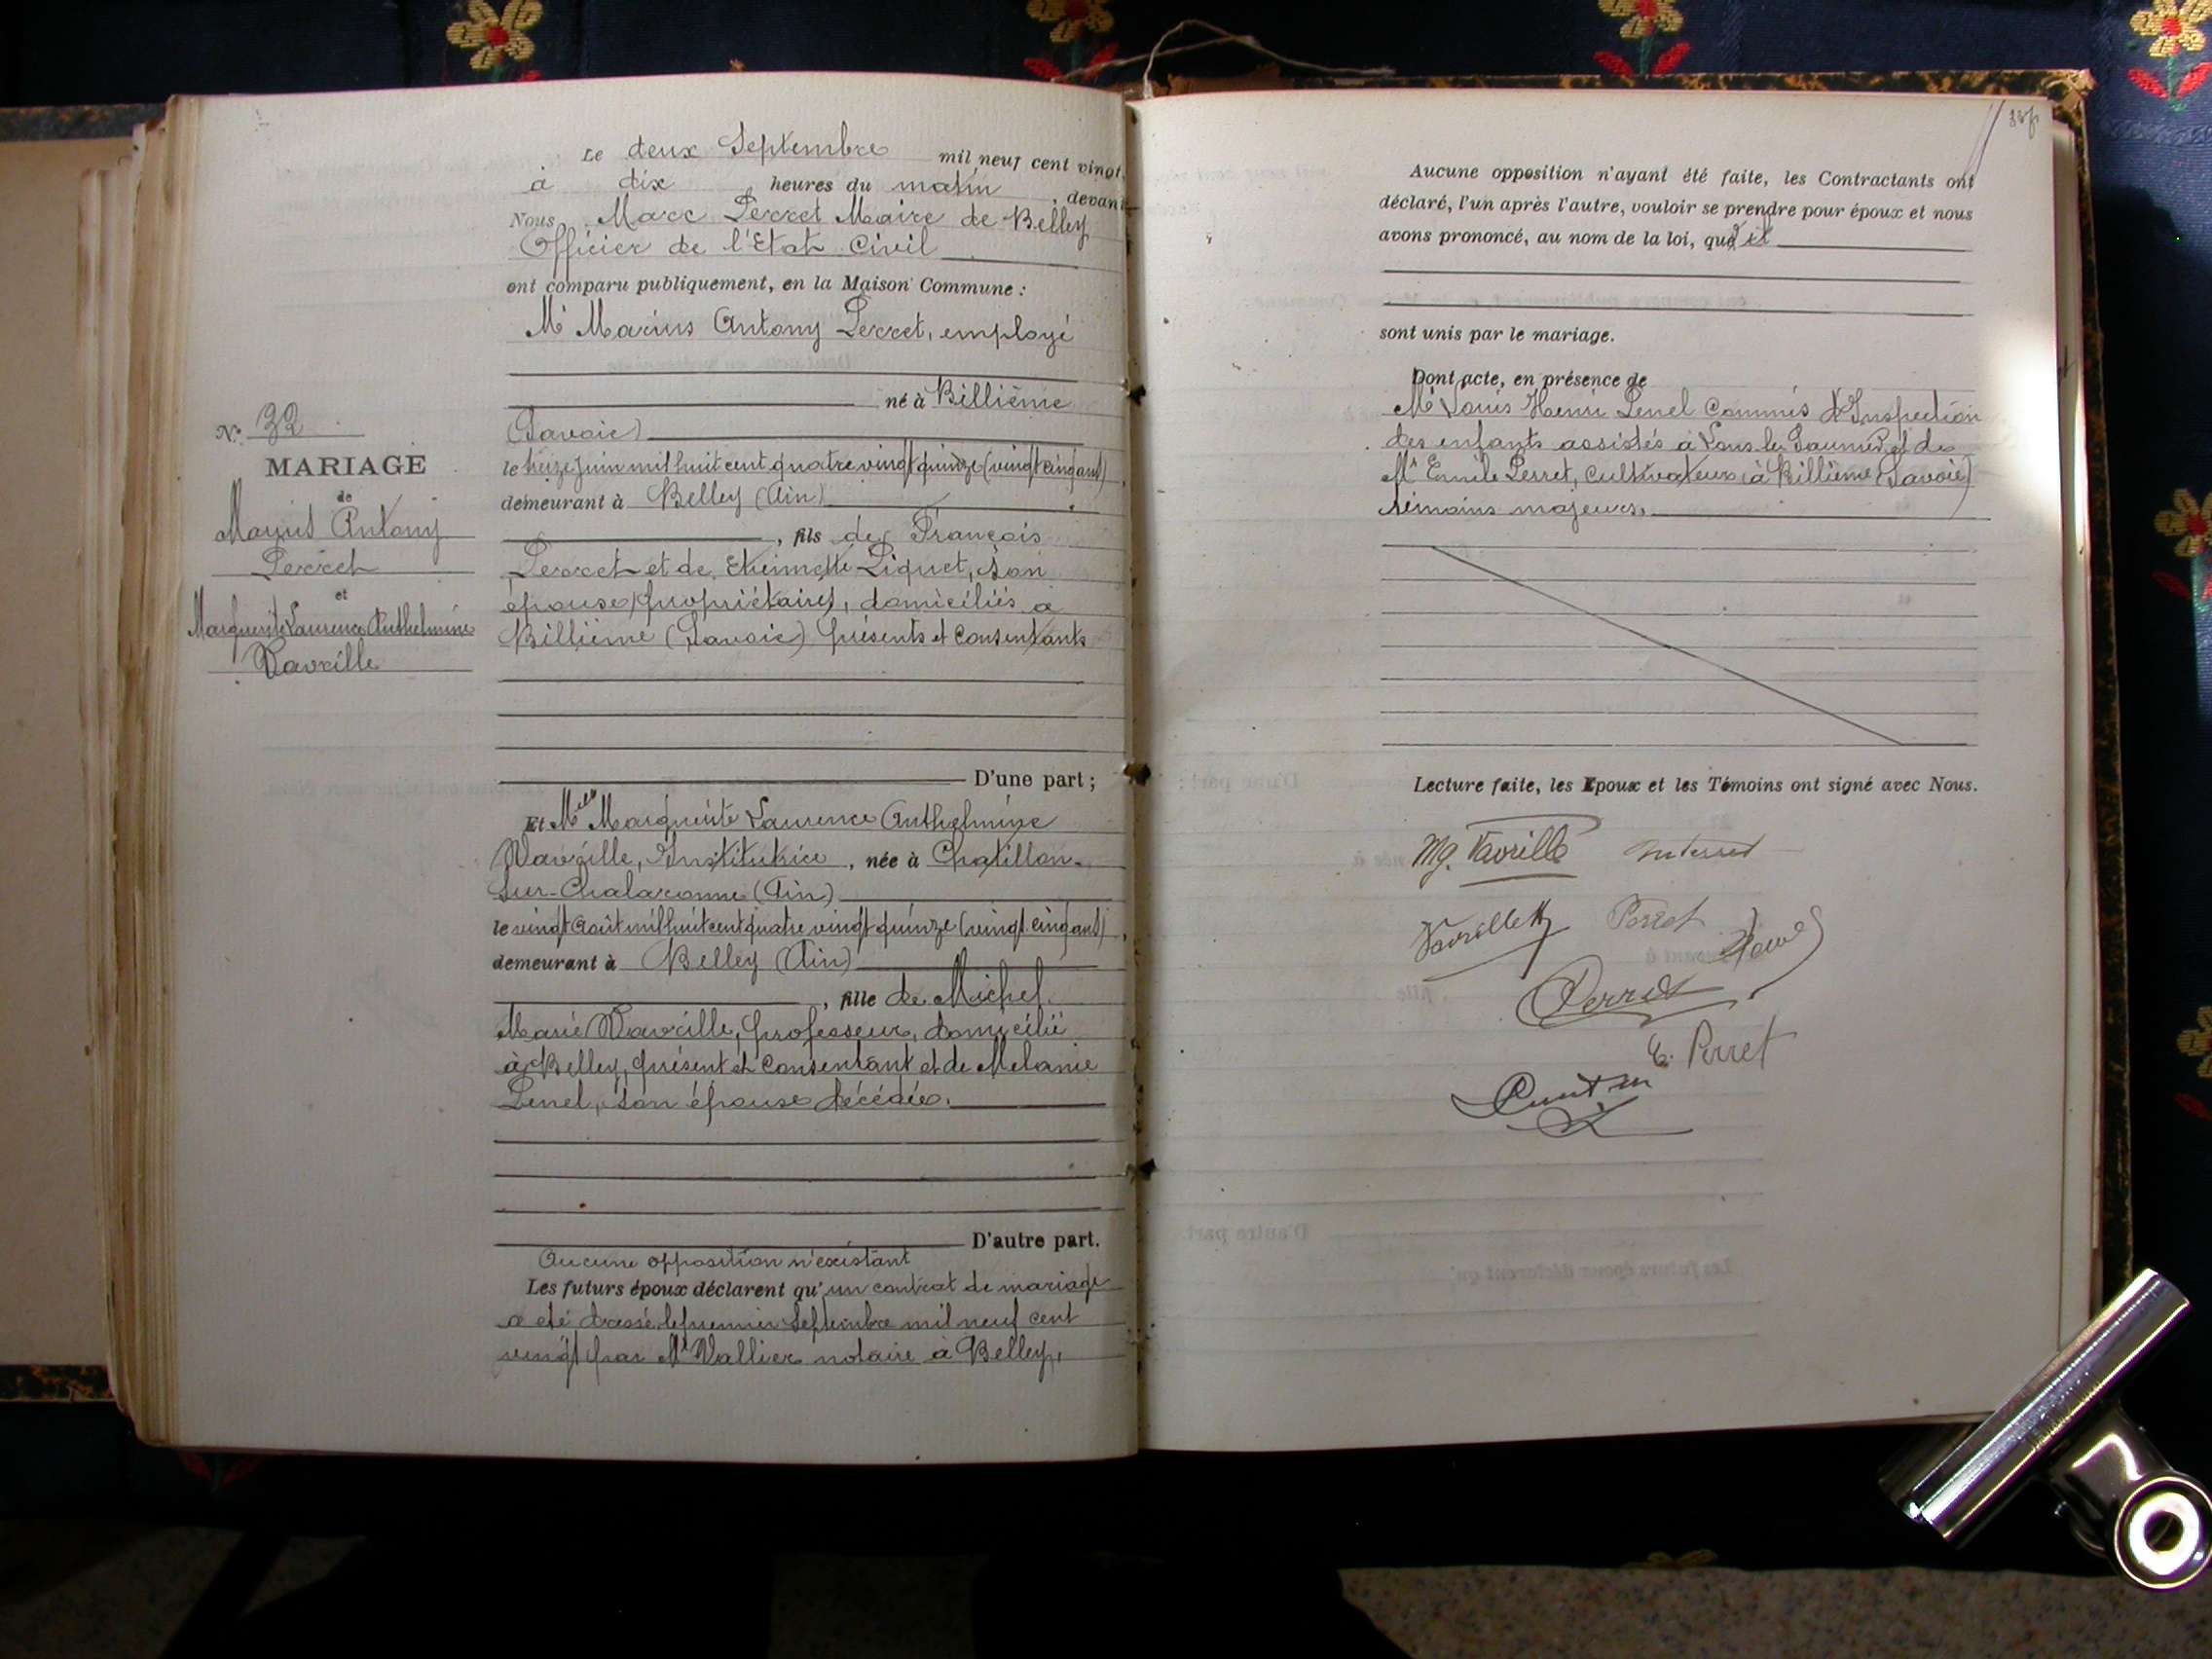 Le deux Septembre mil neuf cent vingt,
à dix heures du matin, devant
Nous, Marc Perret Maire de Belley
Officier de l'Etat Civil
ont comparu publiquement, en la Maison Commune :
Mr Marius Antony Perret, employé
né à Billième
(Savoie)
le treize juin mil huit cent quatre vingt quinze (vingt cinq ans),
demeurant à Belley (Ain)
, fils de François
Perret et de Etiennette Piquet, son
épouse, propriétaires, domiciliés à
Billième (Savoie) présents et consentants
D'une part ;
N° 32
MARIAGE
de
Marius Antony
Perret
et
Marguerite Laurence Anthelmine
Vavrille
Et Melle Marguerite Laurence Anthelmine
Vavrille, Institutrice, née à Chatillon-
sur-Chalaronne (Ain)
le vingt août mil huit cent quatre vingt quinze (vingt cinq ans),
demeurant à Belley (Ain)
, fille de Michel
Marie Vavrille, professeur, domicilié
à Belley, présent et consentant et de Melanie
Penel, son épouse décédée.
D'autre part.
Aucune opposition n'existant
Les futurs époux déclarent qu'un contrat de mariage
a été dressé le premier Septembre mil neuf cent
vingt par Me Vallier notaire à Belley,
Aucune opposition n'ayant été faite, les Contractants ont
déclaré, l'un après l'autre, vouloir se prendre pour époux et nous
avons prononcé, au nom de la loi, qu'ils
sont unis par le mariage.
Dont acte, en présence de
Mr Louis Henri Penel Commis d'Inspection
des enfants assistés à Lons le Saunier et de
Mr Emile Perret, cultivateur à Billième (Savoie)
témoins majeurs.
Lecture faite, les Epoux et les Témoins ont signé avec Nous.
Mg. Vavrille
Vavrille Perret
Perret
E. Perret